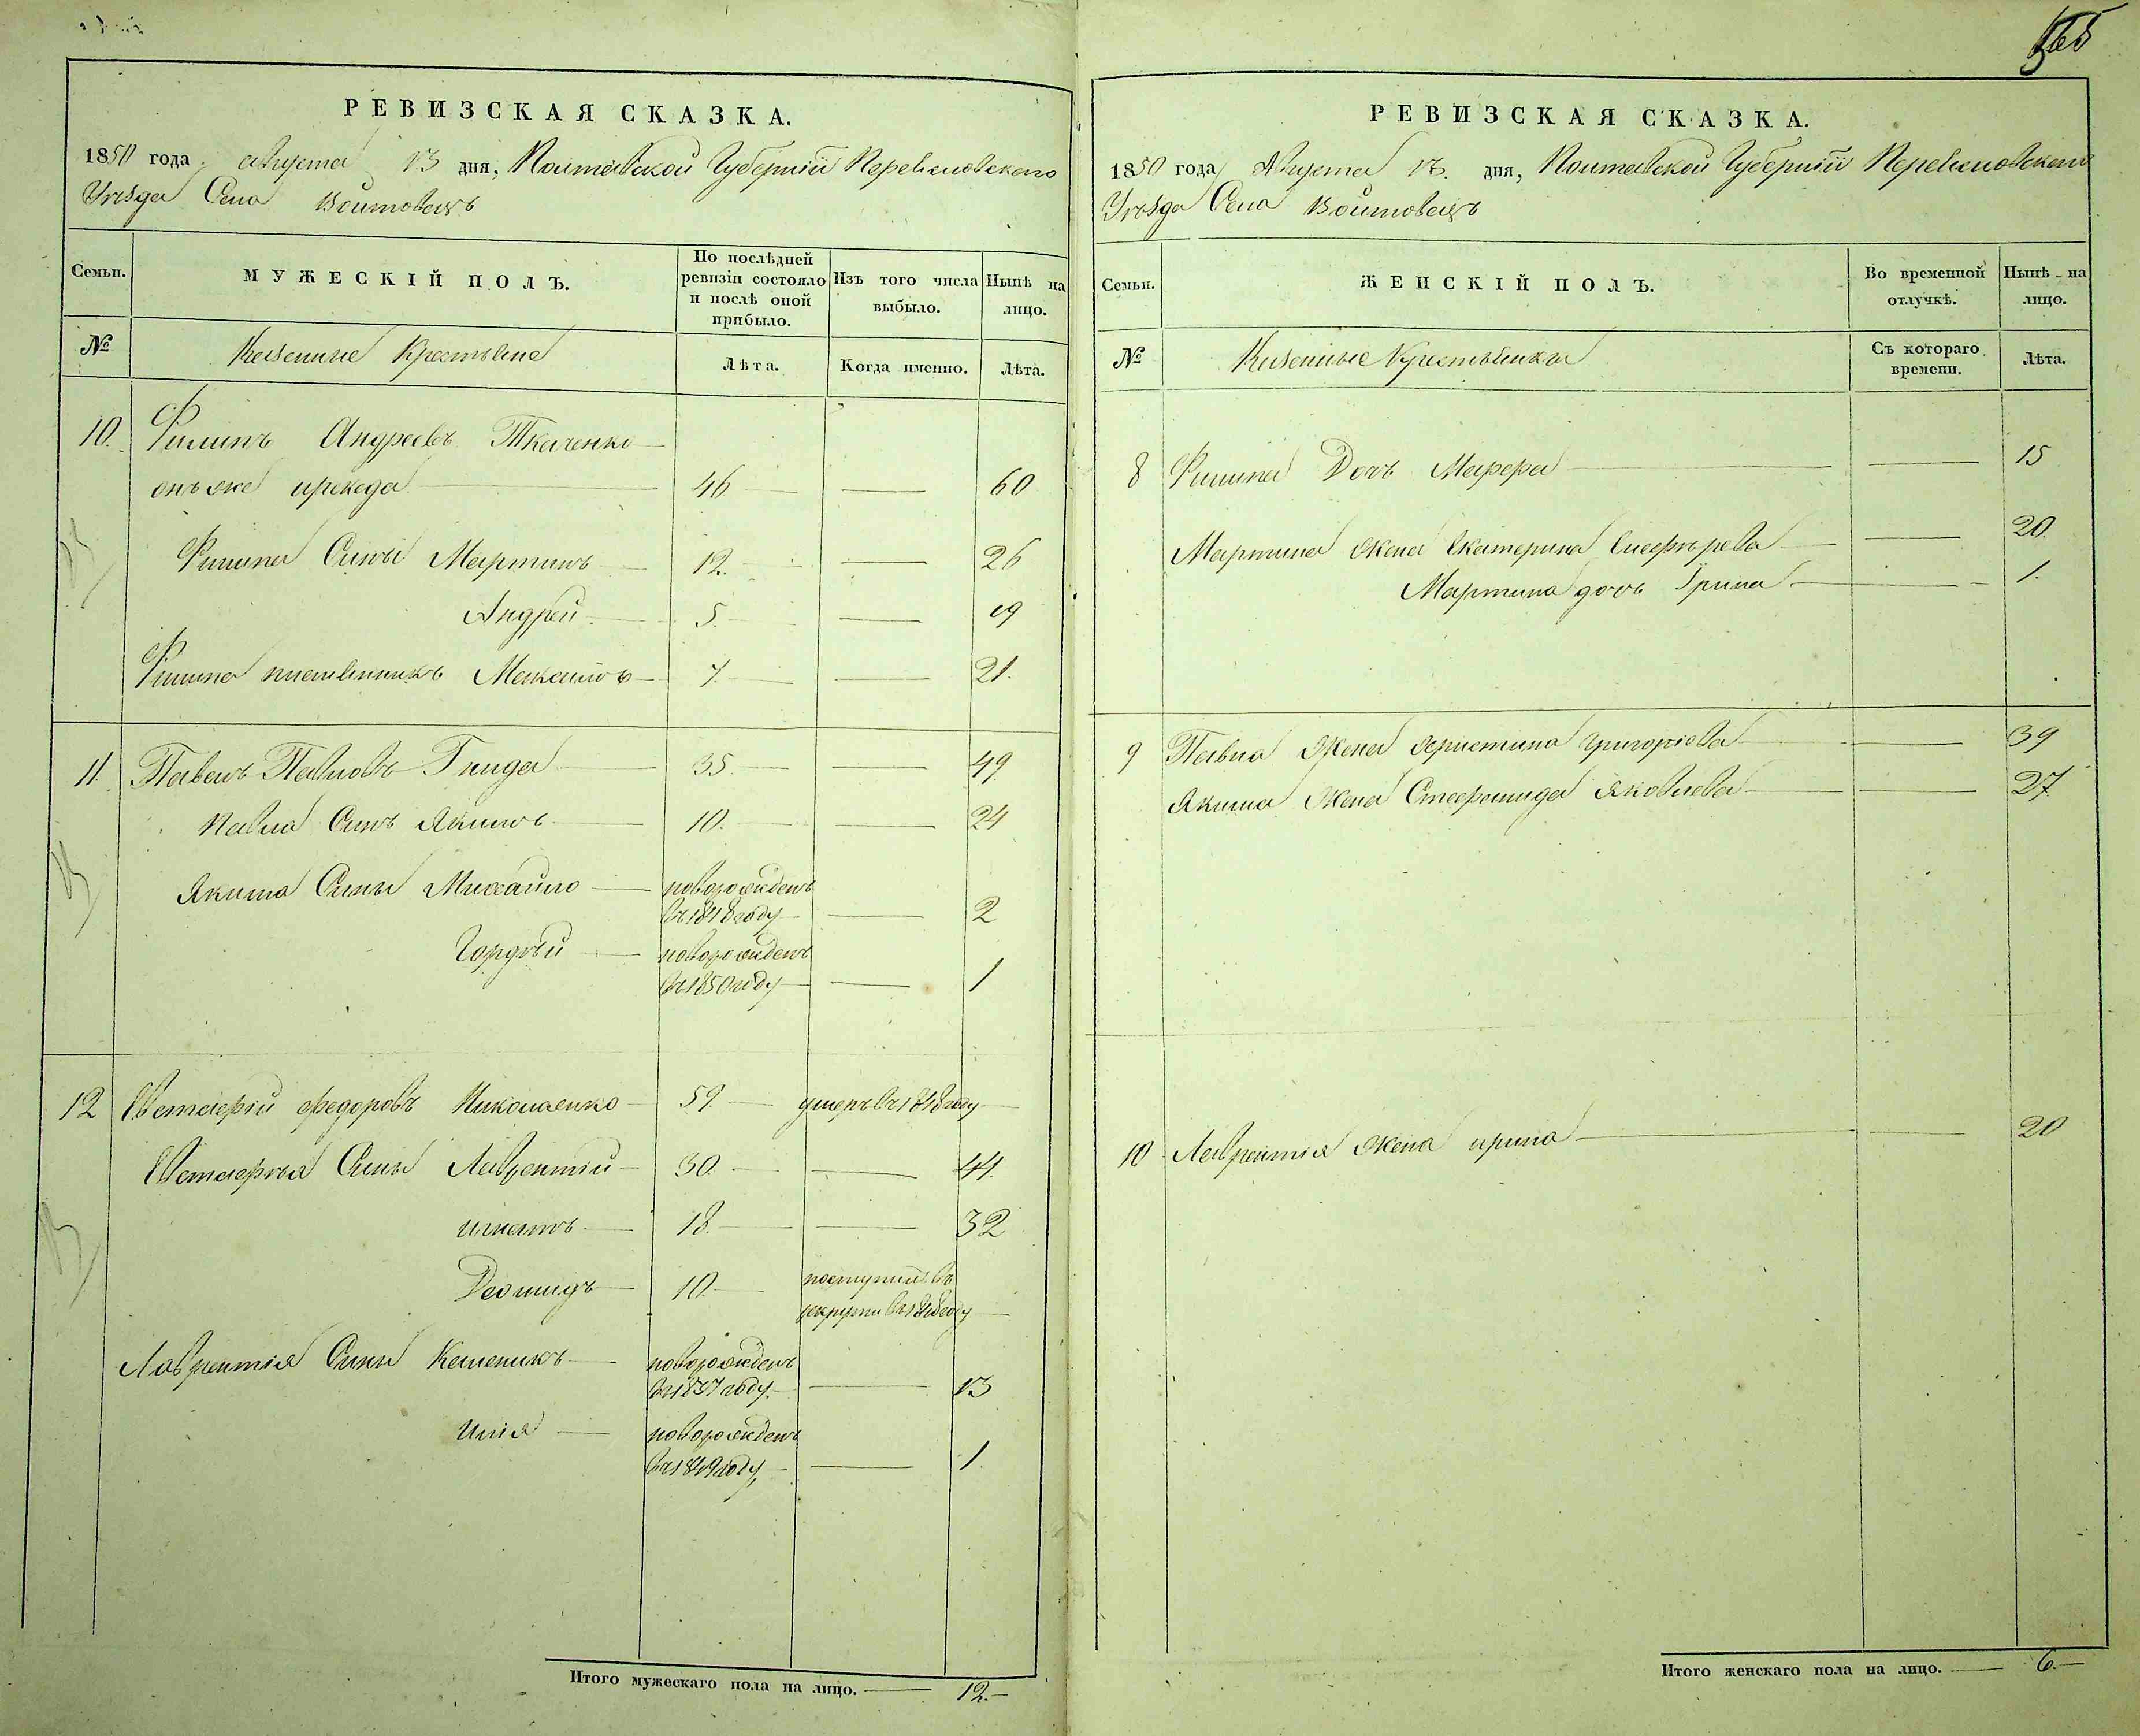 565
РЕВИЗСКАЯ СКАЗКА.
1850 года августа 13 дня, Полтавской Губерніи Переяславского
Уезда Села Войтовецъ
Семьи. МУЖЕСКІЙ ПОЛЪ. По послѣдней ревизіи состояло и послѣ оной прибыло. Изъ того числа выбыло. Нынѣ на лицо.
№ Казенние Крестьяне Лѣта. Когда именно. Лѣта.
10. Филипъ Андреевъ Ткаченко
онъ же 46 60
Филипа Сины Мартинъ 12. 26
Андрей 5. 19
Филипа племянникъ 7. 21.
11. Павелъ Павловъ Гнида 35. 49.
Павла Синъ Якимъ 10. 24
Якима Сины Михайло новорожденъ
въ 1848 году 2
Гордѣй новорожденъ
въ 1850 году 1
12 Евстафій Федоровъ Николаенко 59. умеръ въ 1848 году
Евстафія Сины Лаврентій 30. 44.
Игнатъ 18. 32
Деомидъ 10. поступилъ въ
рекруты въ году
Лаврентія Сины Каленикъ новорожденъ
въ 1837 году 13
Илія новорожденъ
въ 1849 году 1.
Итого мужескаго пола на лицо. 12.
РЕВИЗСКАЯ СКАЗКА.
1850 года Августа 13. дня, Полтавской Губерніи Переяславского
Уезда Села Войтовецъ
Семьи. ЖЕНСКІЙ ПОЛЪ. Во временной отлучкѣ. Нынѣ на лицо.
№ Казенные Крестьянки Съ котораго времени. Лѣта.
8 Филипа Дочь Марфа 15
Мартина Жена Екатерина 20.
Мартина дочь Ірина 1.
9 Павла Жена Христина Григоріева 39
Якима Жена Стефанида Яковлева 27.
10 Лаврентія Жена Ирина 20
Итого женскаго пола на лицо. 6.